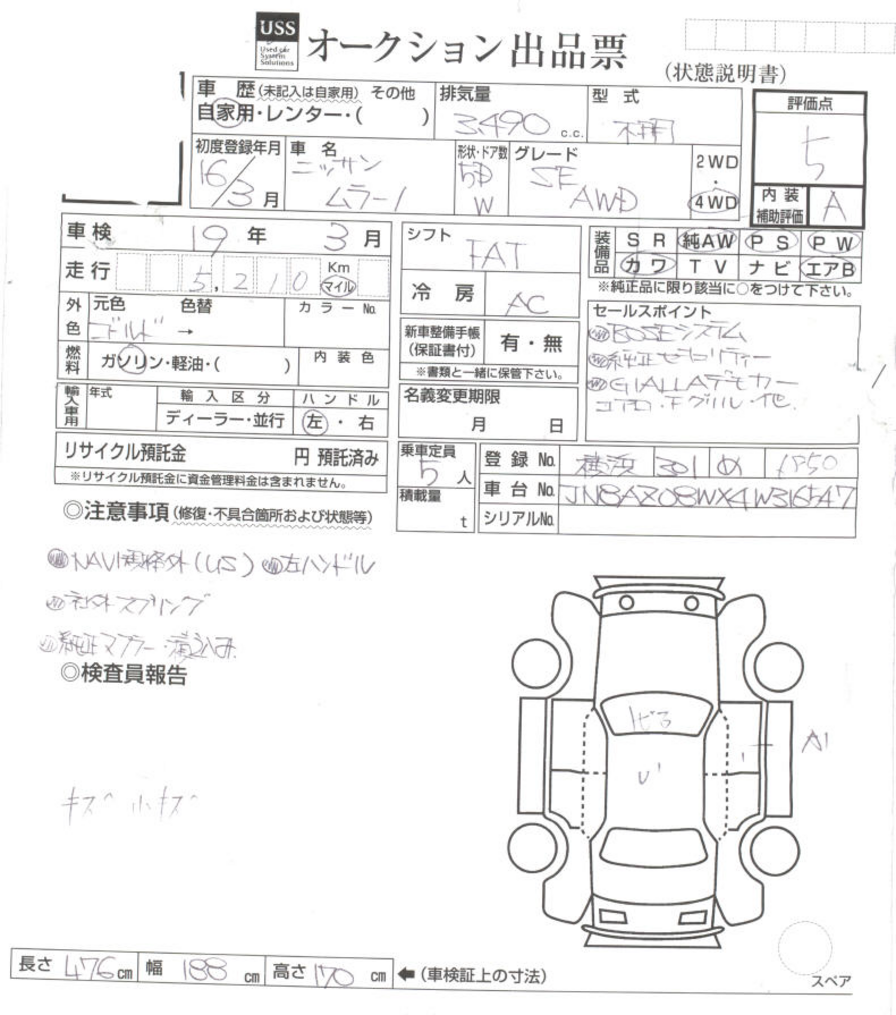 USS
Used car
System
Solutions
オークション出品票
(状態説明書)
車歴(未記入は自家用) その他
自家用・レンター・( )
排気量
3,490 c.c.
型式
不明
評価点
5
内装
補助評価
A
初度登録年月
16/3月
車名
ニッサン
ムラーノ
形状・ドア数
5D
W
グレード
SE
AWD
2WD
・
4WD
車検 19年 3月
走行 5,210 Km
マイル
外色
元色 色替
ゴールド →
カラーNo.
燃料
ガソリン・軽油・( )
内装色
輸入車用
年式
輸入区分
ディーラー・並行
ハンドル
左・右
リサイクル預託金 円 預託済み
※リサイクル預託金に資金管理料金は含まれません。
シフト FAT
冷房 AC
新車整備手帳
(保証書付)
有・無
※書類と一緒に保管下さい。
名義変更期限
月 日
乗車定員
5人
積載量
t
装備品
SR 純AW PS PW
カワ TV ナビ エアB
※純正品に限り該当に○をつけて下さい。
セールスポイント
BOSEシステム
純正セキュリティー
GIALLAデモカー
エアロ・Fグリル・他
登録No. 横浜 301 め
車台No. JN8AZ08WX4W316547
シリアルNo.
◎注意事項(修復・不具合箇所および状態等)
NAVI対象外(US) 左ハンドル
社外スプリング
純正マフラー・積込み
◎検査員報告
キズ 小キズ
トビ有
U1
A1
長さ 476cm 幅 188cm 高さ 170cm ←(車検証上の寸法)
スペア